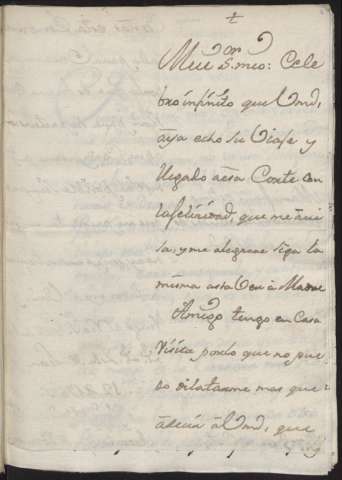 +
Muy S.or mio: Cele
bro infinito que Vmd,
aya echo su Viaje y
llegado a esa Corte con
la felicidad, que me avi
sa, y me alegrare siga la
misma asta
Amigo tengo en Casa
Visita por lo que no pue
do dilatarme mas que
a decir a Vmd, que